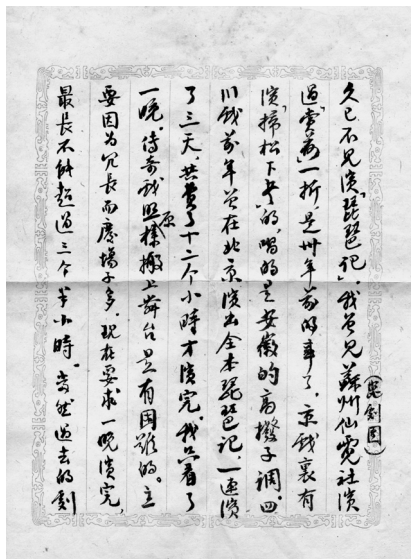 久已不見演「琵琶記」，我曾見蘇州仙霓社演
（崑劇團）
過「賞荷」一折，是卅年前的事了。京戏裏有
演「掃松下书」的，唱的是安徽的高撥子調。四
川戏前年曾在北京演出全本琵琶記，一連演
了三天，共費了十二个小時才演完。我只看了
一晚。传奇戏照原樣搬上舞台是有困难的。主
要因为冗長而廢場子多。現在要求一晚演完，
最長不能超過三个半小時。当然過去的剧